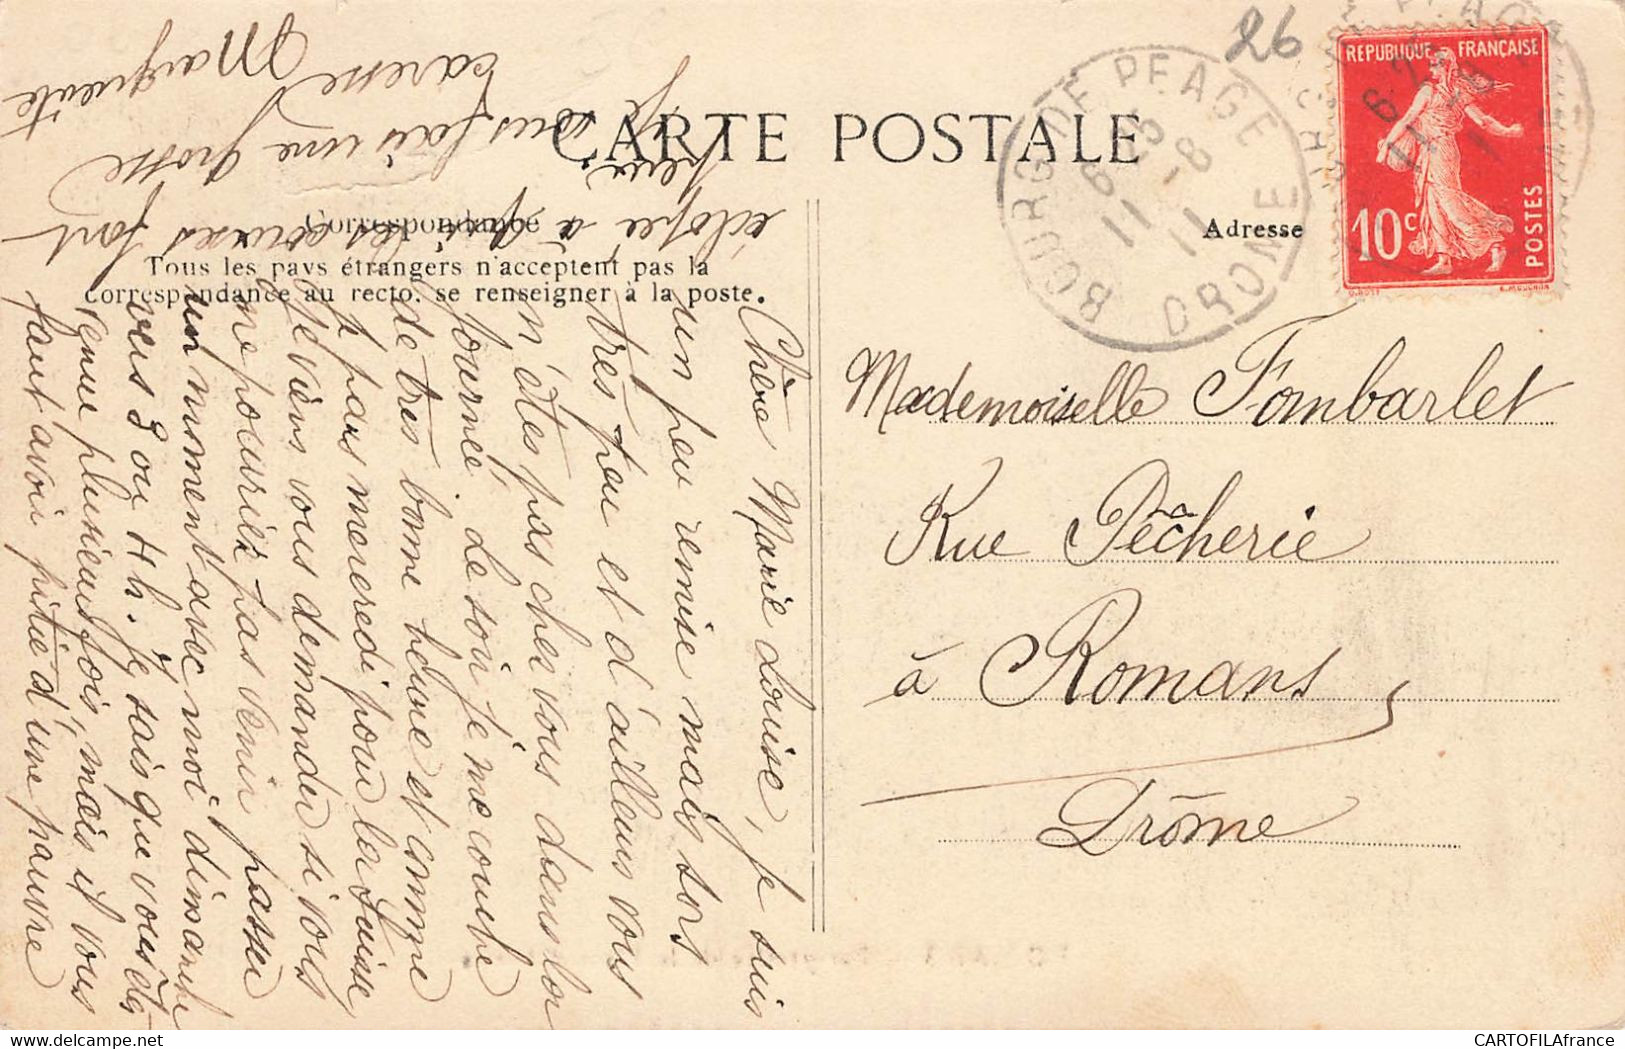 26
REPUBLIQUE FRANÇAISE
10c
POSTES
O. ROTY
E. MOUCHON
BOURG-DE-PEAGE
6 25
11 -8
11
DROME
CARTE POSTALE
Correspondance
Adresse
Tous les pays étrangers n'acceptent pas la
correspondance au recto. se renseigner à la poste.
Mademoiselle Fombarlet
Rue Pêcherie
à Romans
Drôme
Chère Marie Louise, je suis
un peu remise mais sors
très peu et d'ailleurs vous
n'êtes pas chez vous dans la
journée. Le soir je me couche
de très bonne heure et comme
je pars mercredi pour la Suisse
je viens vous demander si vous
ne pourriez pas venir passer
un moment avec moi dimanche
vers 3 ou 4 h. Je sais que vous êtes
venue plusieurs fois, mais il vous
faut avoir pitié d'une pauvre
éclopée à qui les courses font
peur.
Je vous fais une grosse
caresse
Marguerite
CARTOFILAfrance